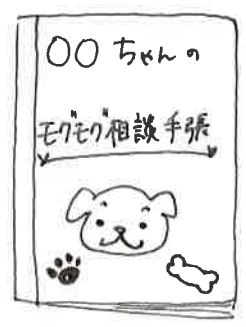 ○○ちゃんの
モグモグ相談手張